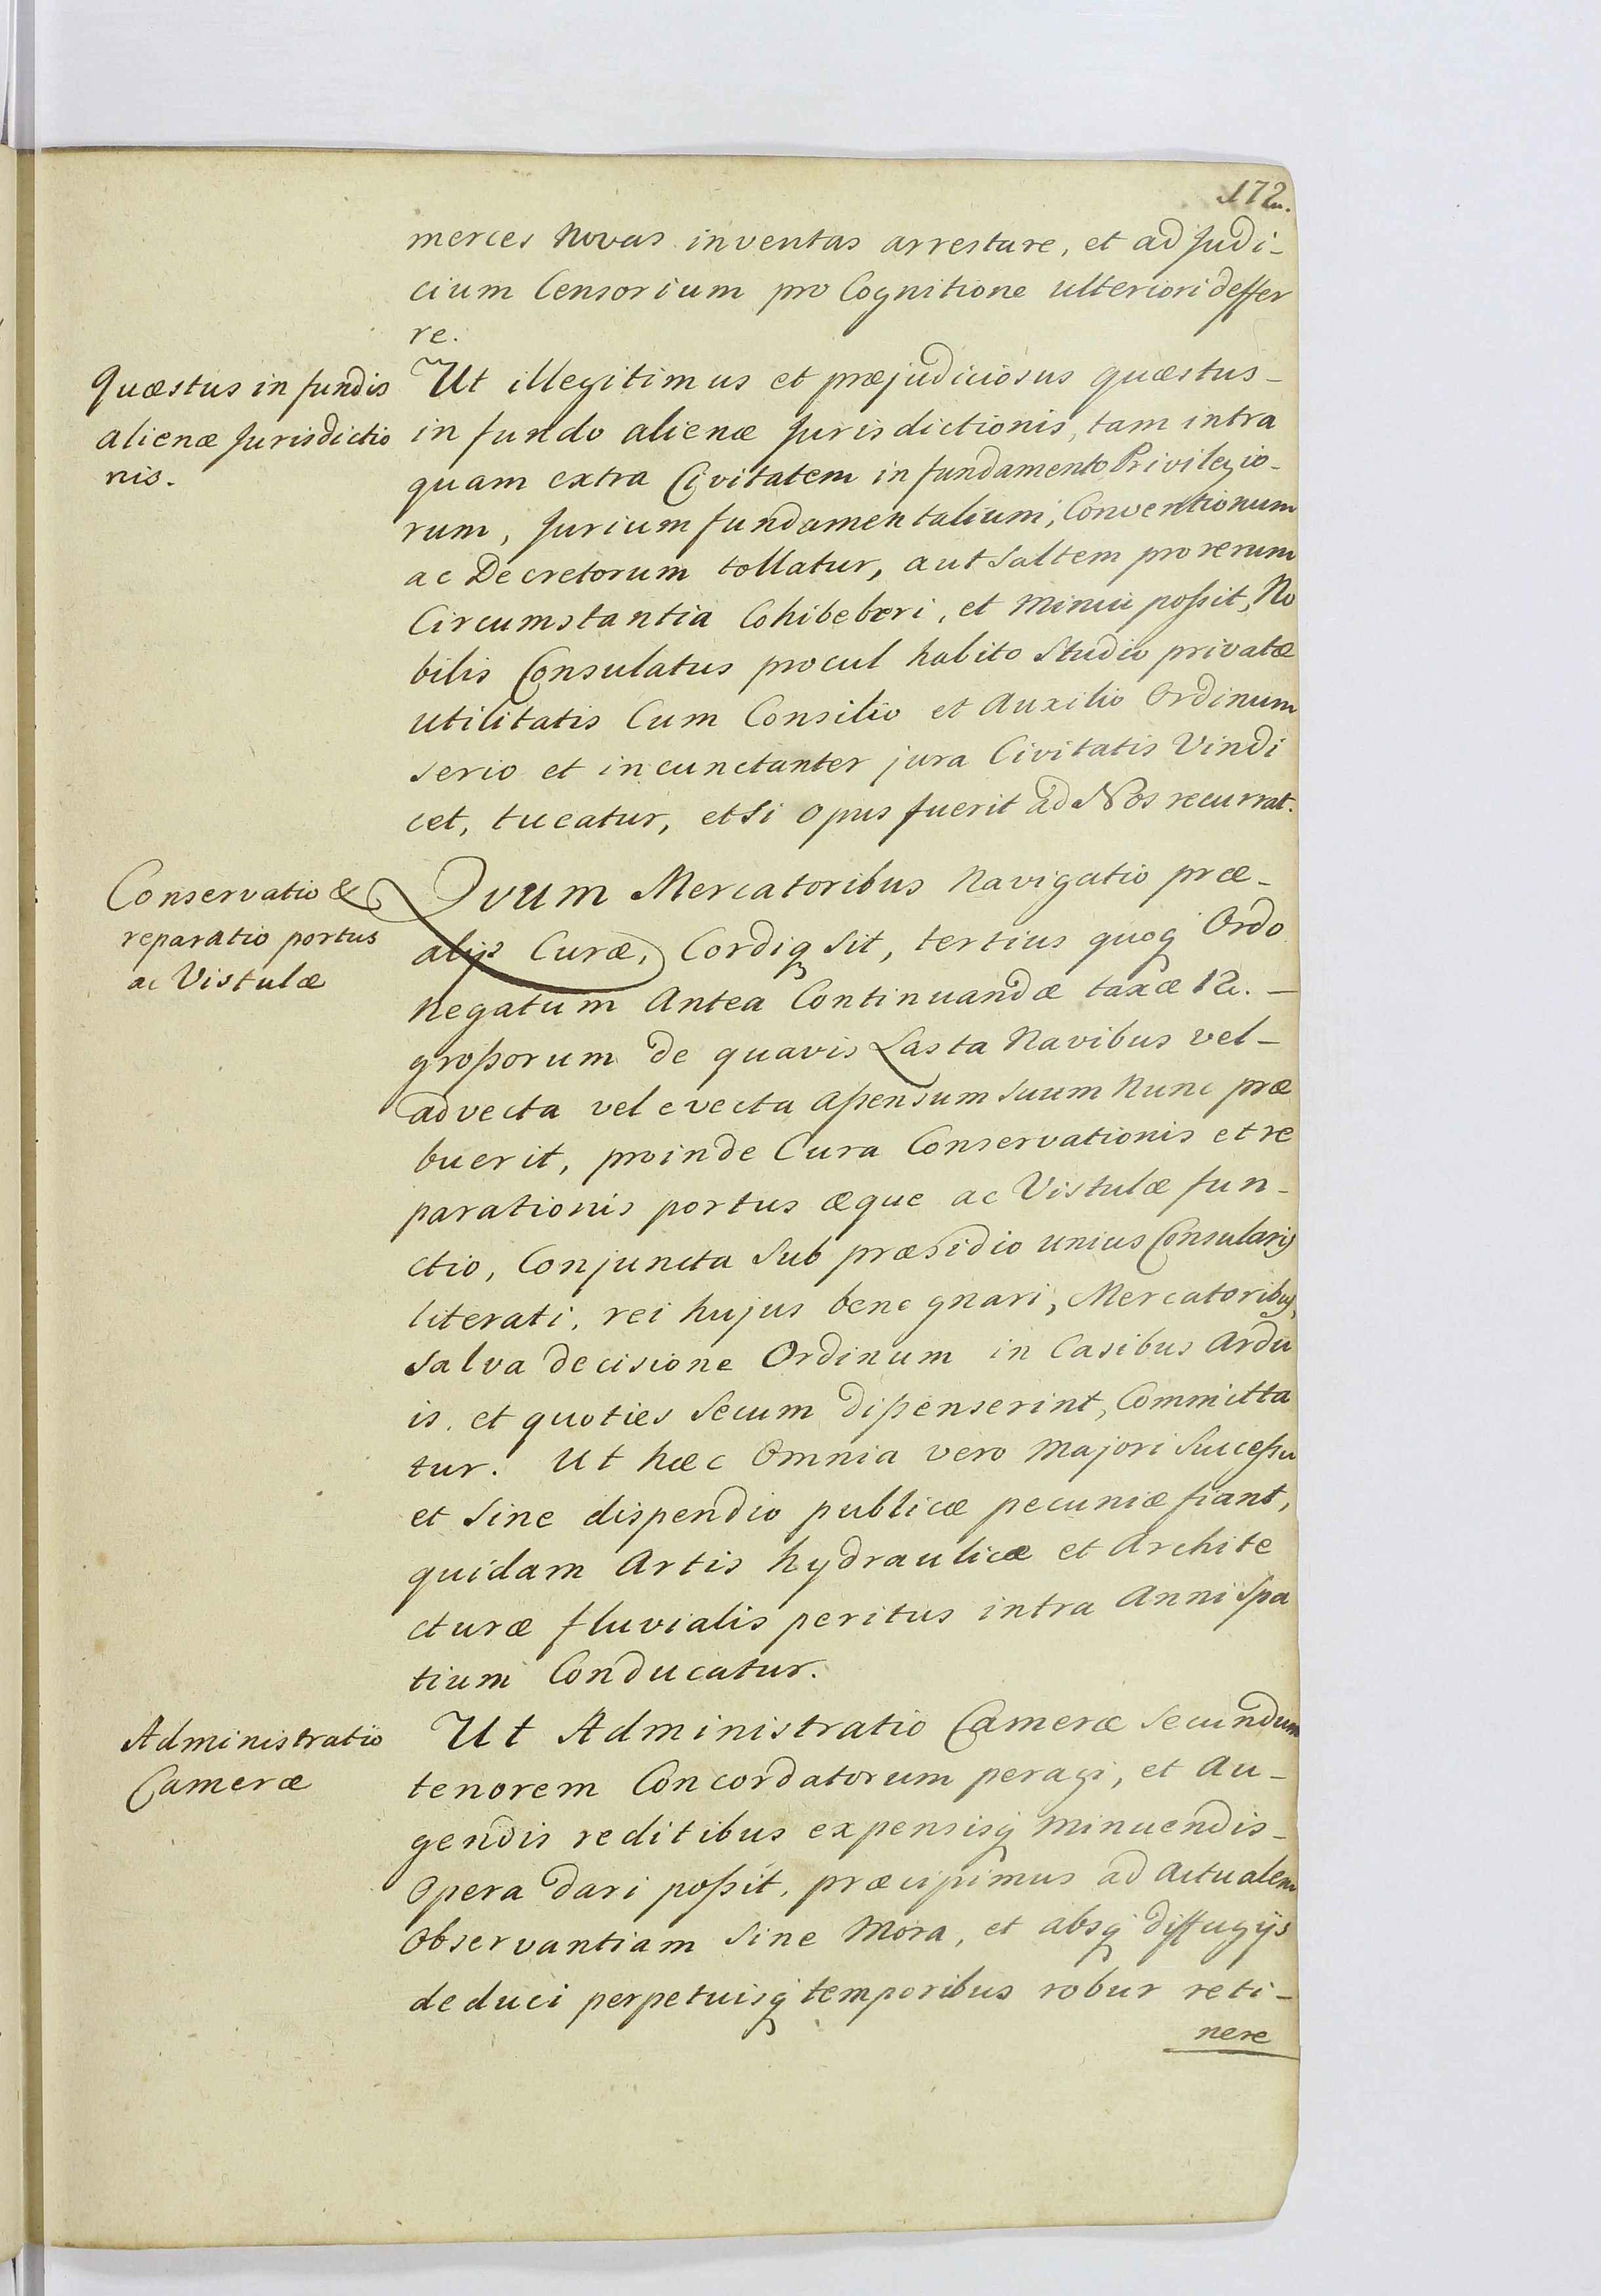 172.
merces Novas inventas arrestare, et ad Judi-
cium Censorium pro Cognitione ulteriori deffer
re.
Quæstus in fundis
alienæ Jurisdictio
nis.
Ut illegitimus et præjudiciosus quæstus-
in fundo alienæ Jurisdictionis, tam intra
quam extra Civitatem in fundamento Privilegio-
rum, Jurium fundamentalium, Conventionum
ac Decretorum tollatur, aut saltem pro rerum
Circumstantia Cohiberi, et minui poßit, No
bilis Consulatus procul habito Studio privatæ
utilitatis Cum Consilio et Auxilio Ordinum
serio et incunctanter jura Civitatis Vindi
cet, tueatur, et si opus fuerit ad Nos recurrat.
Conservatio &
reparatio portus
ac Vistulæ
Qvum Mercatoribus Navigatio præ-
alijs Curæ, Cordiq sit, tertius quoq Ordo
negatum Antea Continuandæ taxæ 12. -
großorum de quavis Lasta Navibus vel-
advecta vel evecta aßensum suum Nunc præ
buerit, proinde Cura Conservationis et re
parationis portus æque ac Vistulæ fun-
ctio, Conjuncta sub præsidio unius Consularis
literati, rei hujus bene gnari, Mercatoribus,
salva decisione Ordinum in Casibus Ardu
is, et quoties secum dißenserint, Committa
tur. Ut hæc Omnia vero majori Succeßu
et sine dispendio publicæ pecuniæ fiant,
quidam Artis hydraulicæ et Archite
cturæ fluvialis peritus intra Anni spa
tium Conducatur.
Administratio
Cameræ
Ut Administratio Cameræ secundum
tenorem Concordatorum peragi, et Au-
gendis reditibus expensisq minuendis-
Opera dari poßit, præcipimus ad Actualem
Observantiam sine Mora, et absq diffugijs
deduci perpetuisq temporibus robur reti-
nere